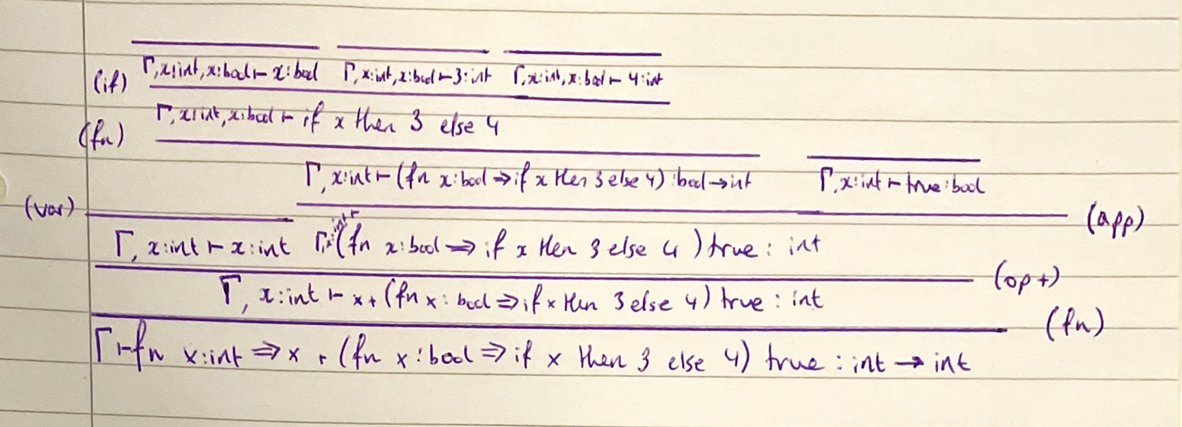 Γ, x:int, x:bool ⊢ x:bool Γ, x:int, x:bool ⊢ 3:int Γ, x:int, x:bool ⊢ 4:int
(if)
Γ, x:int, x:bool ⊢ if x then 3 else 4
(fn)
Γ, x:int ⊢ (fn x:bool ⇒ if x then 3 else 4) : bool → int Γ, x:int ⊢ true:bool
(var) (app)
Γ, x:int ⊢ x:int Γ, x:int ⊢ (fn x:bool ⇒ if x then 3 else 4) true : int
(op +)
Γ, x:int ⊢ x + (fn x : bool ⇒ if x then 3 else 4) true : int
(fn)
Γ ⊢ fn x:int ⇒ x + (fn x : bool ⇒ if x then 3 else 4) true : int → int